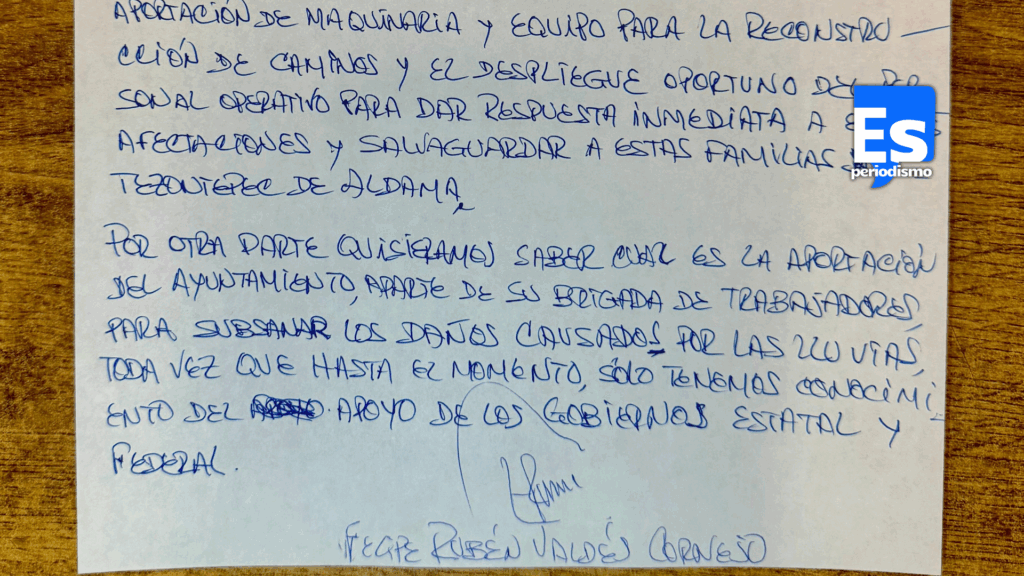 APORTACIÓN DE MAQUINARIA Y EQUIPO PARA LA RECONSTRU
CCIÓN DE CAMINOS Y EL DESPLIEGUE OPORTUNO DEL PER
SONAL OPERATIVO PARA DAR RESPUESTA INMEDIATA A
AFECTACIONES Y SALVAGUARDAR A ESTAS FAMILIAS
TEZONTEPEC DE ALDAMA,
POR OTRA PARTE QUISIÉRAMOS SABER CUAL ES LA APORTACIÓN
DEL AYUNTAMIENTO, APARTE DE SU BRIGADA DE TRABAJADORES,
PARA SUBSANAR LOS DAÑOS CAUSADOS POR LAS LLUVIAS,
TODA VEZ QUE HASTA EL MOMENTO, SÓLO TENEMOS CONOCIMI
ENTO DEL APOYO DE LOS GOBIERNOS ESTATAL Y
FEDERAL.
FELIPE RUBÉN VALDÉS CORNEJO
Es
periodismo